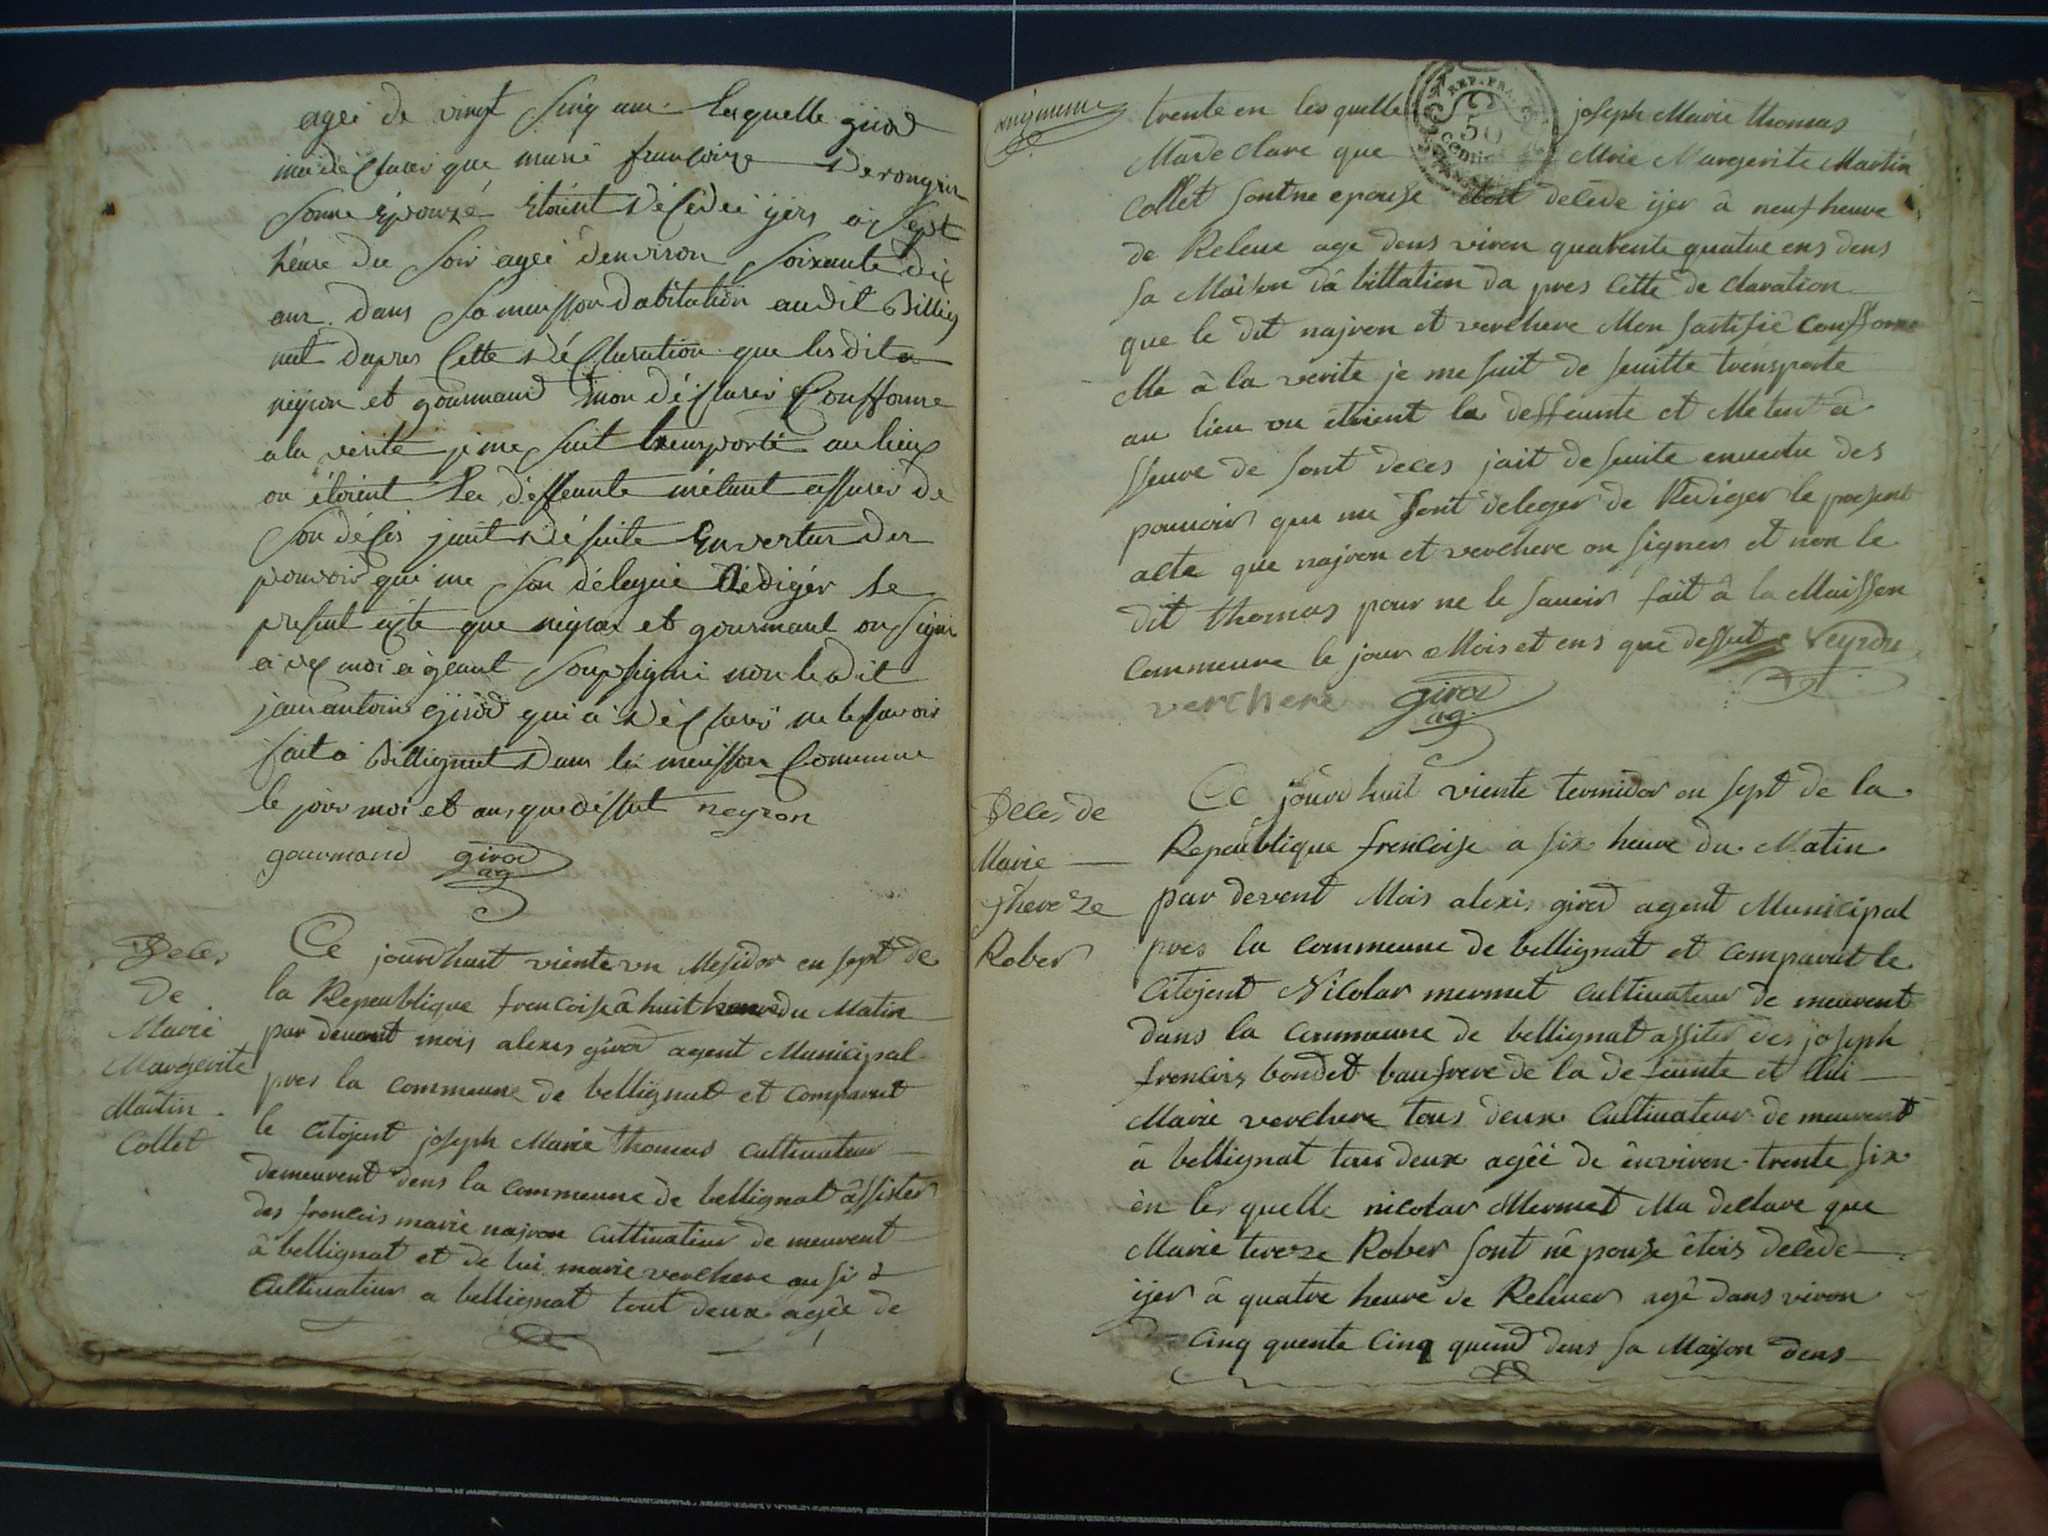 agée de vingt sinq ans laquelle girod
ma déclarer que marie francoize Derongin
sonne épouzé étoint décédée yers à sept
heure du soir agéé denviron soixante dix
ans dans sa meisson dabitation audit Billig
nat dapres cette déclaration que les dit
neyron et gourmand mon déclarér confforme
a la vérité je me suit transporté au lieux
ou étoient la deffeunte métant assurér de
son décés jait dé suite en vertus des
pouvoir qui me son délegué Rédigér le
present acte que neyron et gourmand on signé
avec moi ageant soussigné non le dit
jean antoine girod qui a déclaré ne le savoir
fait a Billignat dans la meisson commune
le jour moi et ans que dessut neyron
gourmand girod
ag
Deces
de
Marie
Margerite
Martin
Collet
Ce jourdhuit viente un Mesidor en sept de
la Repeublique francoise â huit heure du Matin
par devant mois alexis girod agent Municipal
pres la commeune de bellignat et comparut
le citojent joseph Marie thomas cultivateur
demeurent dens la commeune de bellignat âssister
des francois marie najron cultivateur de meurent
â bellignat et de lui marie verchere ausi
cultivateur a bellignat tout deux agée de
trente en les quelle joseph Marie thomas
Ma declare que Mrie Margerite Martin
Collet sontne epouse étoit décéde ijer â neuf heure
de Releve age dens viron quarente quatre ens dens
sa Maison dâ bittation da pres cette de claration
que le dit najron et verchere Mon sartifié conffor
Me â la verite je me suit de seuitte trensporte
au lieu ou étoient la deffeunte et Metent a
sseure de sont deces jait de suite en vertu des
pouvoir que me sont deleger de Rediger le present
acte que najron et verchere on signer et non le
dit thomas pour ne le savoir fait â la Maisson
commeune le jour Mois et ens que dessut neyron
verchere girod
ag.
Deces de
Marie
therese
Rober
Ce jourd huit viente termidor en sept de la
Republique francoise a six heure du Matin
par devent Mois alexis girod agent Municipal
pres la commeune de bellignat et comparut le
Citojent Nicolas mermet cultivateur de meurent
dans la commeune de bellignat assiter des joseph
francois bondet baufrere de la defeunte et lui
Marie verchere tous deux cultivateur de meurent
â bellignat tous deux agéé de environ trente six
en les quelle nicolas Mermet Ma declare que
Marie tereze Rober sont né pouse étois decede
ijer â quatre heure de Relever agé dans viron
cinq quente cinq quend dens sa Maison dens